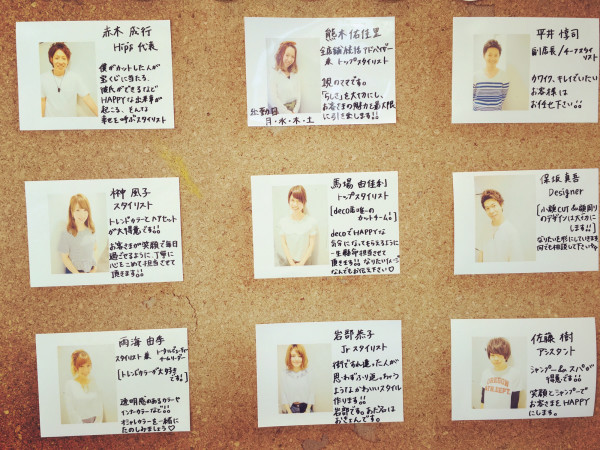 赤木 成行
Hip's 代表
僕がカットした人が
宝くじに当たる、
彼氏ができるなど
HAPPYな出来事が
起こる、そんな
幸せを呼ぶスタイリスト
熊木 佑佳里
全店舗統括 アドバイザー
兼 トップスタイリスト
親のママです。
"らしさ"を大切にし、
お客さまの魅力を最大限
に引き出します!!
出勤日
月・水・木・土
平井 惇司
副店長/チーフスタイリスト
カワイク、キレイでいたい
お客様は
お任せ下さい!!
榊 風子
スタイリスト
トレンドカラーとヘアセット
が大得意です!!
お客さまが笑顔で毎日
過ごせるように、丁寧に
心をこめて担当させて
頂きます!!
馬場 由佳利
トップスタイリスト
[deco店唯一の
カットチーム!!]
decoでHAPPYな
気分になってもらえるように
一生懸命担当させて
頂きます!! なりたいイメージ
なんでもお伝え下さい♡
保坂 真吾
Designer
[小顔CUT &顔周り
のデザインは大得意
します!!]
なりたい形にしていきます
何でも相談して下さい
両海 由季
スタイリスト 兼
[トレンドカラーが大好き
です!]
透明感のあるカラーや
インナーカラーなど!!
オシャレカラーを一緒に
たのしみましょう♡
岩部 恭子
Jr スタイリスト
街ですれ違った人が
思わずふり返っちゃう
ようなかわいいスタイル
作ります!!
岩部です。あだ名は
おきょんです。
佐藤 樹
アシスタント
シャンプー&スパが
得意です!!
笑顔とシャンプーで
お客さまをHAPPY
にします。